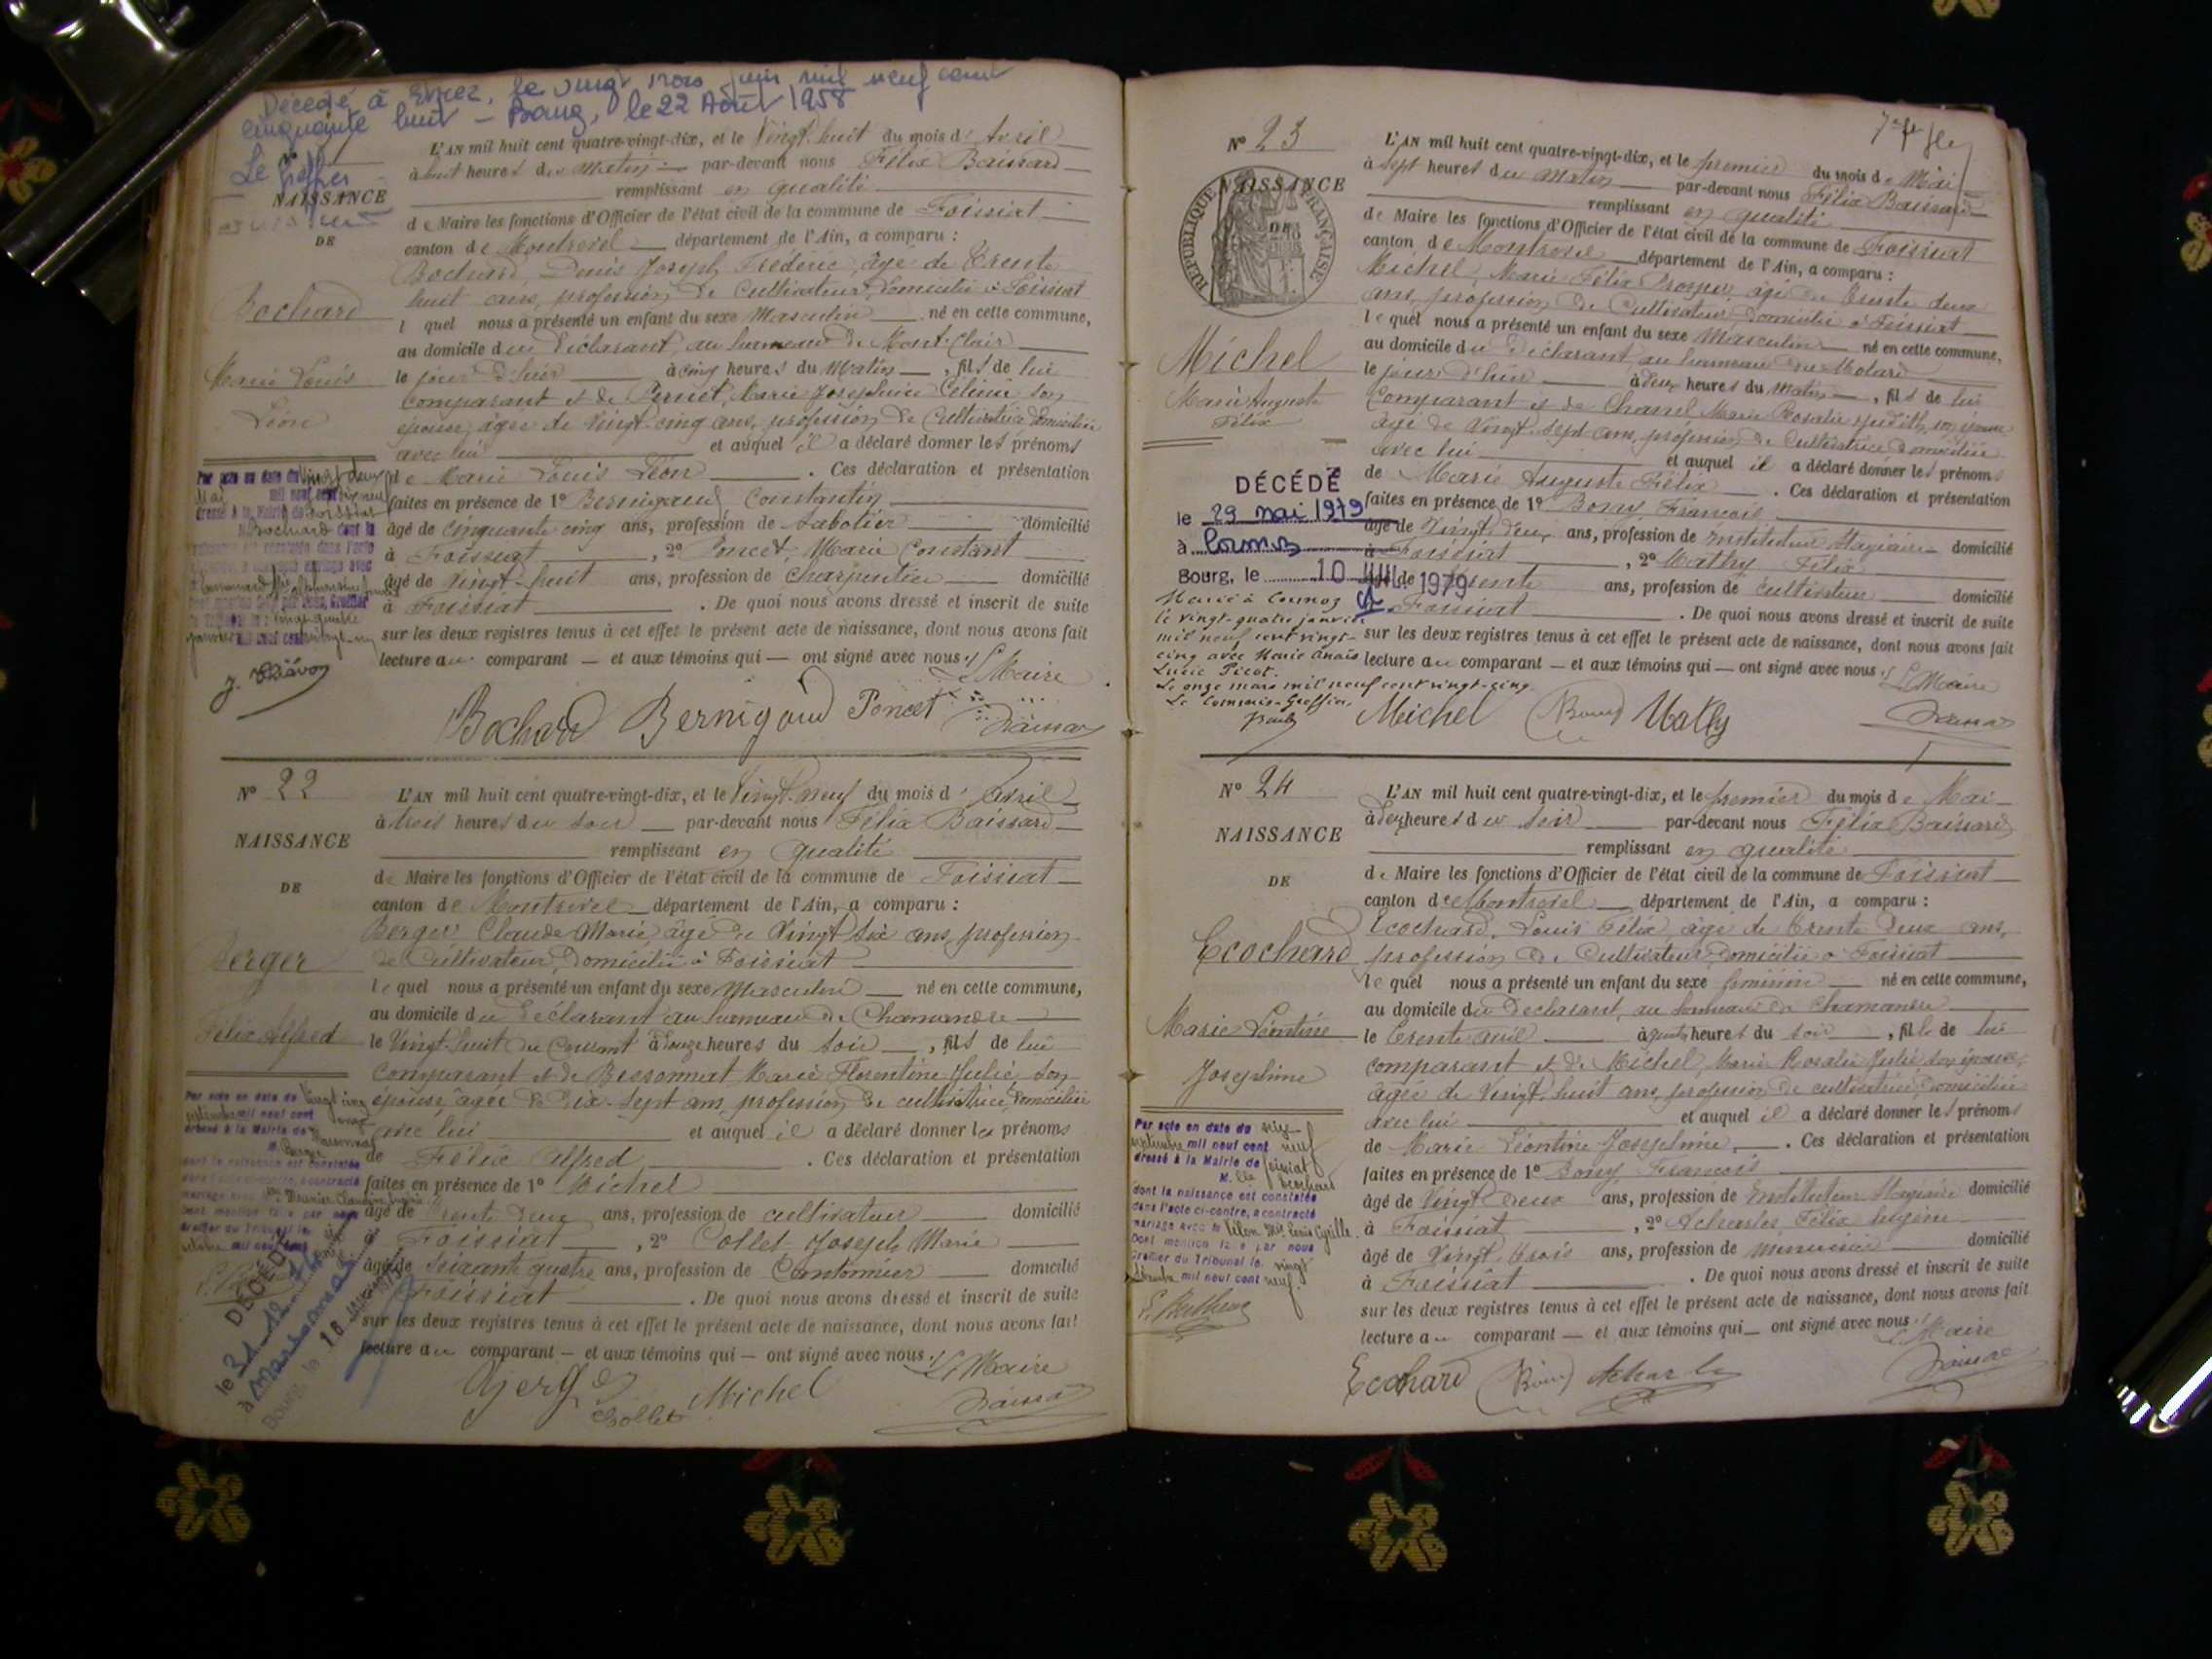 Décédé à Etrez, le vingt trois juin mil neuf cent
cinquante huit - Bourg, le 22 Août 1958
Le Greffier
NAISSANCE
DE
Bochard
Marie Louis
Léon
L'AN mil huit cent quatre-vingt-dix, et le Vingt-huit du mois d'Avril
à huit heures du Matin par-devant nous Félix Baissard
remplissant en qualité
de Maire les fonctions d'Officier de l'état civil de la commune de Foissiat
canton de Montrevel département de l'Ain, a comparu :
Bochard Denis Joseph Frédéric, âgé de Trente
huit ans, profession de Cultivateur, domicilié à Foissiat
lequel nous a présenté un enfant du sexe Masculin né en cette commune,
au domicile du Déclarant, au hameau de Mont-Clair
le jour d'hier à cinq heures du Matin, fils de lui
Comparant et de Pernet, Marie Joséphine son
épouse, âgée de Vingt-cinq ans, profession de Cultivatrice domiciliée
avec lui et auquel il a déclaré donner les prénoms
de Marie Louis Léon. Ces déclaration et présentation
faites en présence de 1º Bernigaud Constantin
âgé de Cinquante cinq ans, profession de Sabotier domicilié
à Foissiat, 2º Poncet Marie Constant
âgé de Vingt-huit ans, profession de Charpentier domicilié
à Foissiat. De quoi nous avons dressé et inscrit de suite
sur les deux registres tenus à cet effet le présent acte de naissance, dont nous avons fait
lecture au comparant et aux témoins qui ont signé avec nous
Le Maire
Bochard Bernigaud Poncet
Nº 22
NAISSANCE
DE
Berger
Félix Alfred
L'AN mil huit cent quatre-vingt-dix, et le Vingt-neuf du mois d'Avril
à trois heures du soir par-devant nous Félix Baissard
remplissant en qualité
de Maire les fonctions d'Officier de l'état civil de la commune de Foissiat
canton de Montrevel département de l'Ain, a comparu :
Berger Claude Marie, âgé de Vingt six ans, profession
de Cultivateur, domicilié à Foissiat
lequel nous a présenté un enfant du sexe Masculin né en cette commune,
au domicile du Déclarant au hameau de Chamandre
le Vingt-huit du Courant à onze heures du soir, fils de lui
Comparant et de Bessonnat Marie Florentine Julie son
épouse âgée de Dix-sept ans, profession de cultivatrice, domiciliée
avec lui et auquel il a déclaré donner les prénoms
de Félix Alfred. Ces déclaration et présentation
faites en présence de 1º Michel
âgé de Trente deux ans, profession de cultivateur domicilié
à Foissiat, 2º Collet Joseph Marie
âgé de Soixante quatre ans, profession de Cantonnier domicilié
à Foissiat. De quoi nous avons dressé et inscrit de suite
sur les deux registres tenus à cet effet le présent acte de naissance, dont nous avons fait
lecture au comparant et aux témoins qui ont signé avec nous
Le Maire
DÉCÉDÉ
le 31-12-
Berger Collet Michel
Nº 23
NAISSANCE
DE
RÉPUBLIQUE FRANÇAISE
Michel
Marie Auguste
Félix
L'AN mil huit cent quatre-vingt-dix, et le premier du mois de Mai
à sept heures du Matin par-devant nous Félix Baissard
remplissant en qualité
de Maire les fonctions d'Officier de l'état civil de la commune de Foissiat
canton de Montrevel département de l'Ain, a comparu :
Michel, Marie Félix Prosper âgé de Trente deux
ans, profession de Cultivateur domicilié à Foissiat
lequel nous a présenté un enfant du sexe Masculin né en cette commune,
au domicile du Déclarant au hameau du Molard
le jour d'hier à deux heures du Matin, fils de lui
Comparant et de Chanel Marie Rosalie Judith, son épouse
âgée de Vingt-sept ans, profession de Cultivatrice domiciliée
avec lui et auquel il a déclaré donner les prénoms
de Marie Auguste Félix. Ces déclaration et présentation
faites en présence de 1º Bony François
âgé de Vingt deux ans, profession de Instituteur Stagiaire domicilié
à Foissiat, 2º Mathy Félix
âgé de Trente ans, profession de Cultivateur domicilié
à Foissiat. De quoi nous avons dressé et inscrit de suite
sur les deux registres tenus à cet effet le présent acte de naissance, dont nous avons fait
lecture au comparant et aux témoins qui ont signé avec nous
Le Maire
DÉCÉDÉ
le 29 mai 1979
à Cormoz
Bourg, le 10 JUIL 1979
Marié à Cormoz
le vingt-quatre janvier
mil neuf cent vingt-
cinq avec Marie Anaïs
Lucie Picot.
Le onze mars mil neuf cent vingt-cinq.
Le Commis-Greffier,
Michel Bony Mathy
Nº 24
NAISSANCE
DE
Ecochard
Marie Léontine
Joséphine
L'AN mil huit cent quatre-vingt-dix, et le premier du mois de Mai
à deux heures du soir par-devant nous Félix Baissard
remplissant en qualité
de Maire les fonctions d'Officier de l'état civil de la commune de Foissiat
canton de Montrevel département de l'Ain, a comparu :
Ecochard, Louis Félix, âgé de Trente deux ans,
profession de Cultivateur, domicilié à Foissiat
lequel nous a présenté un enfant du sexe féminin né en cette commune,
au domicile du Déclarant, au hameau de Chamandre
le Trente avril à quatre heures du soir, fille de lui
comparant et de Michel, Marie Rosalie Julie son épouse,
âgée de Vingt-huit ans, profession de cultivatrice, domiciliée
avec lui et auquel il a déclaré donner les prénoms
de Marie Léontine Joséphine. Ces déclaration et présentation
faites en présence de 1º Bony François
âgé de Vingt Deux ans, profession de Instituteur Stagiaire domicilié
à Foissiat, 2º Félix Eugène
âgé de Vingt trois ans, profession de Menuisier domicilié
à Foissiat. De quoi nous avons dressé et inscrit de suite
sur les deux registres tenus à cet effet le présent acte de naissance, dont nous avons fait
lecture au comparant et aux témoins qui ont signé avec nous
Le Maire
Par acte en date du six
septembre mil neuf cent neuf
dressé à la Mairie de Foissiat
M. lle Ecochard
dont la naissance est constatée
dans l'acte ci-contre, a contracté
mariage avec M. Louis Cyrille
Dont mention faite par nous
Greffier du Tribunal le vingt
mil neuf cent neuf.
Ecochard Bony